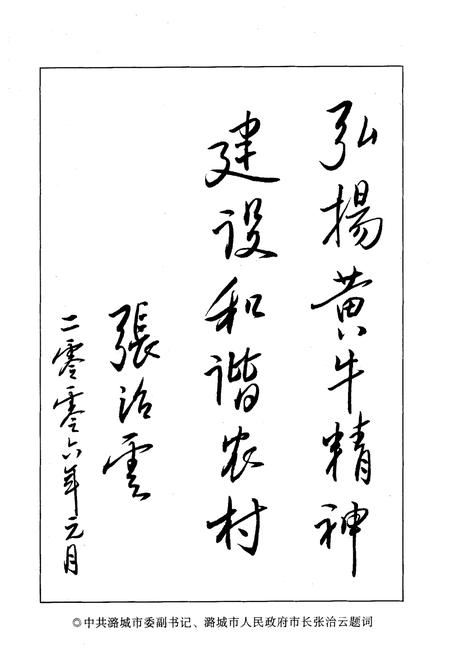 弘揚黄牛精神
建设和谐农村
張治雲
二零零六年元月
◎中共潞城市委副书记、潞城市人民政府市长张治云题词